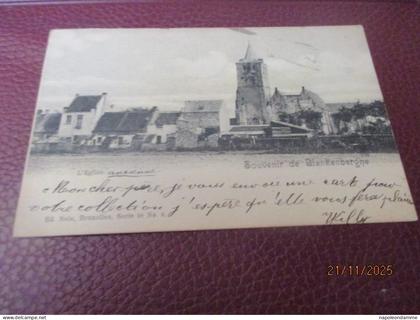 Souvenir de Blankenberghe
L'Eglise
Mon cher père, je vous envoie une carte pour
votre collection j'espère qu'elle vous fera plaisir
Ed. Nels, Bruxelles, Serie
Willy
21/11/2025
www.napoleondamme.com